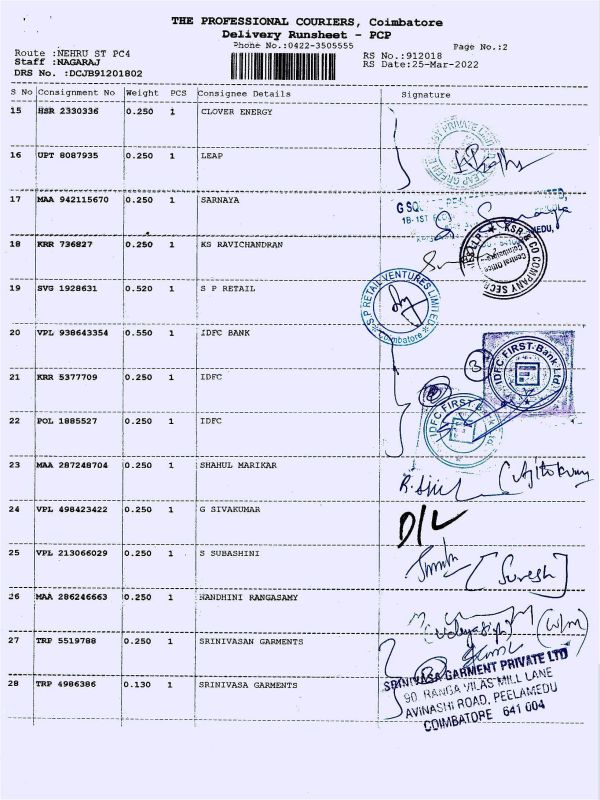 THE PROFESSIONAL COURIERS, Coimbatore
Delivery Runsheet - PCP
Phone No.:0422-3505555
Page No.:2
Route :NEHRU ST PC4
Staff :NAGARAJ
DRS No. :DCJB91201802
RS No.:912018
RS Date:25-Mar-2022
S No Consignment No Weight PCS Consignee Details Signature
15 HSR 2330336 0.250 1 CLOVER ENERGY
16 UPT 8087935 0.250 1 LEAP
17 MAA 942115670 0.250 1 SARNAYA
18 KRR 736827 0.250 1 KS RAVICHANDRAN
19 SVG 1928631 0.520 1 S P RETAIL
S.P RETAIL VENTURES LIMITED
Coimbatore
20 VPL 938643354 0.550 1 IDFC BANK
IDFC FIRST Bank Ltd.
21 KRR 5377709 0.250 1 IDFC
22 POL 1885527 0.250 1 IDFC
IDFC FIRST Bank Ltd
23 MAA 287248704 0.250 1 SHAHUL MARIKAR
24 VPL 498423422 0.250 1 G SIVAKUMAR
D/L
25 VPL 213066029 0.250 1 S SUBASHINI
[Suresh]
26 MAA 286246663 0.250 1 NANDHINI RANGASAMY
27 TRP 5519788 0.250 1 SRINIVASAN GARMENTS
28 TRP 4986386 0.130 1 SRINIVASA GARMENTS
SRINIVASA GARMENT PRIVATE LTD
90 RANGA VILAS MILL LANE
AVINASHI ROAD, PEELAMEDU
COIMBATORE 641 004